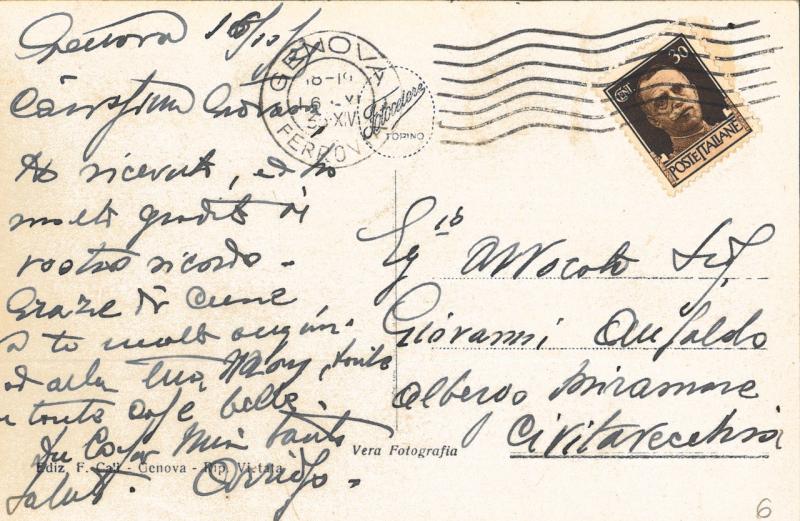 Genova
Ho ricevuto, ed ho
molto gradito il
vostro ricordo -
Grazie di cuore,
a te molti auguri
ed alla tua Mary, tante
e tante cose belle.
Da casa mia tanti
saluti. Arrigo -
GENOVA
18-19
XV
FERROV
Fotocelere
TORINO
CENT. 30
POSTE ITALIANE
Egio Avvocato Sig.
Giovanni Ansaldo
Albergo Miramare
Civitavecchia
Vera Fotografia
Ediz. F. Calì - Genova - Rip. Vietata
6